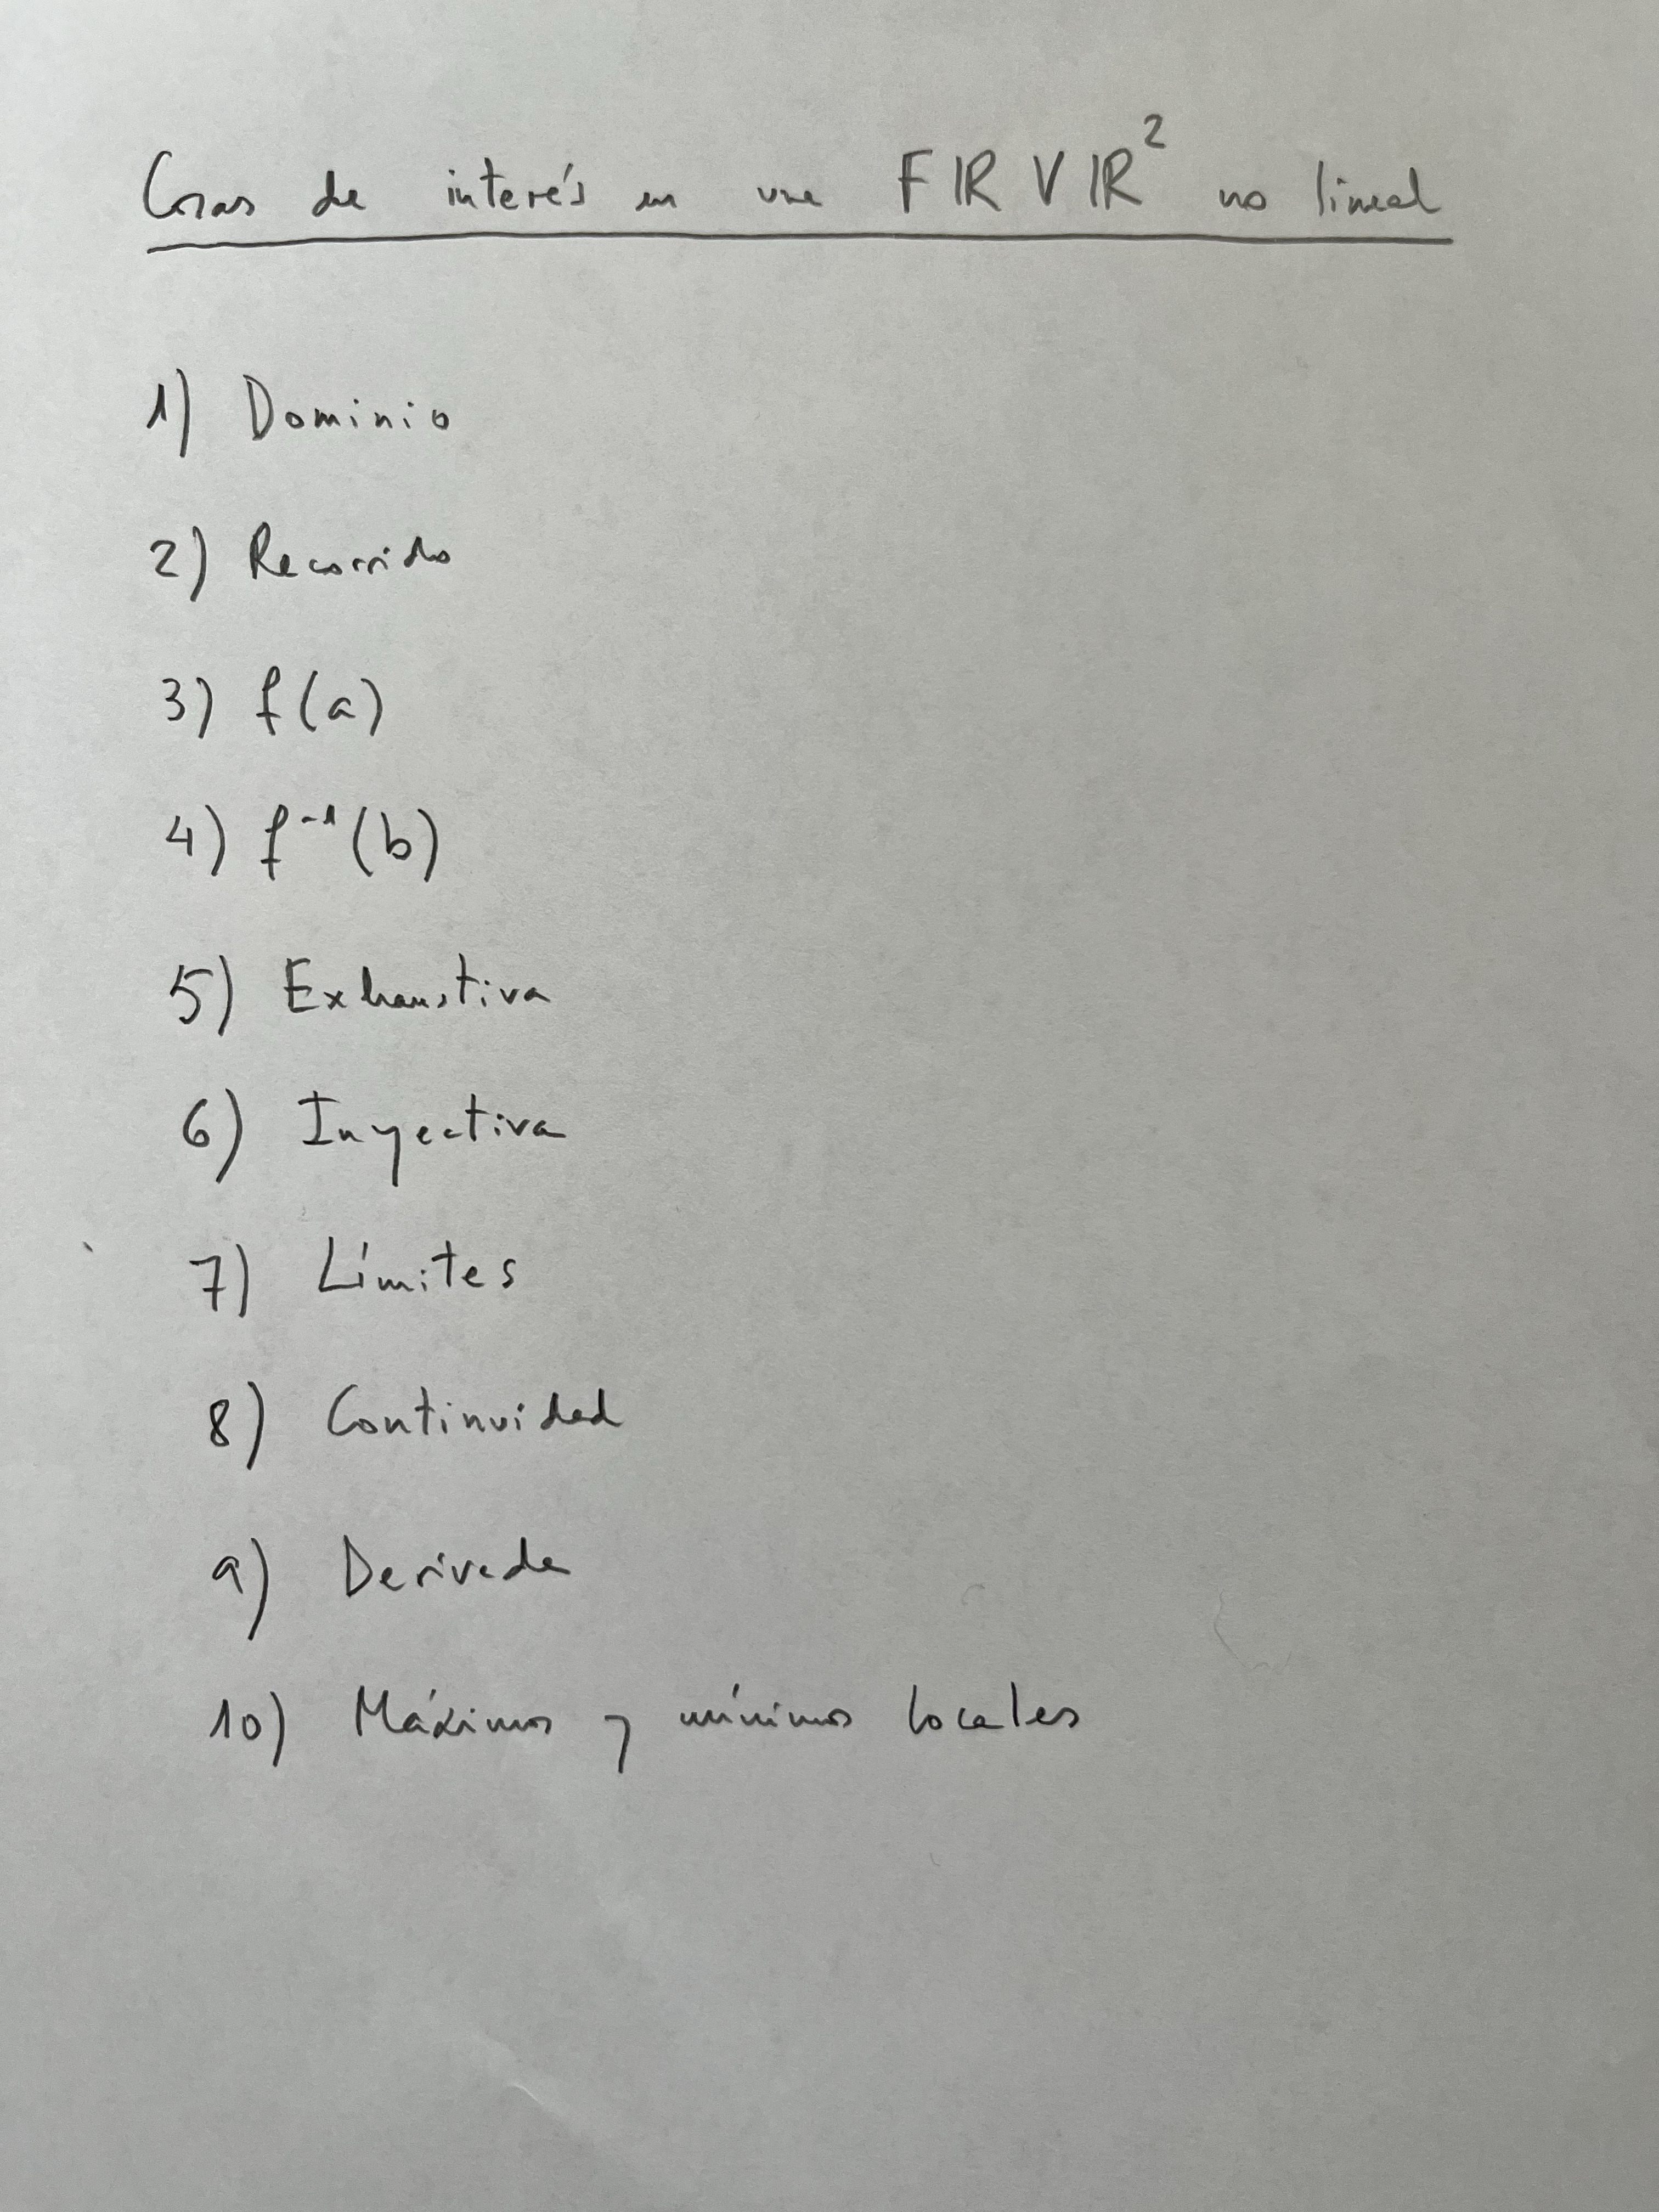 Cosas de interés en una FIRVIR² no lineal
1) Dominio
2) Recorrido
3) f(a)
4) f⁻¹(b)
5) Exhaustiva
6) Inyectiva
7) Límites
8) Continuidad
9) Derivada
10) Máximos y mínimos locales